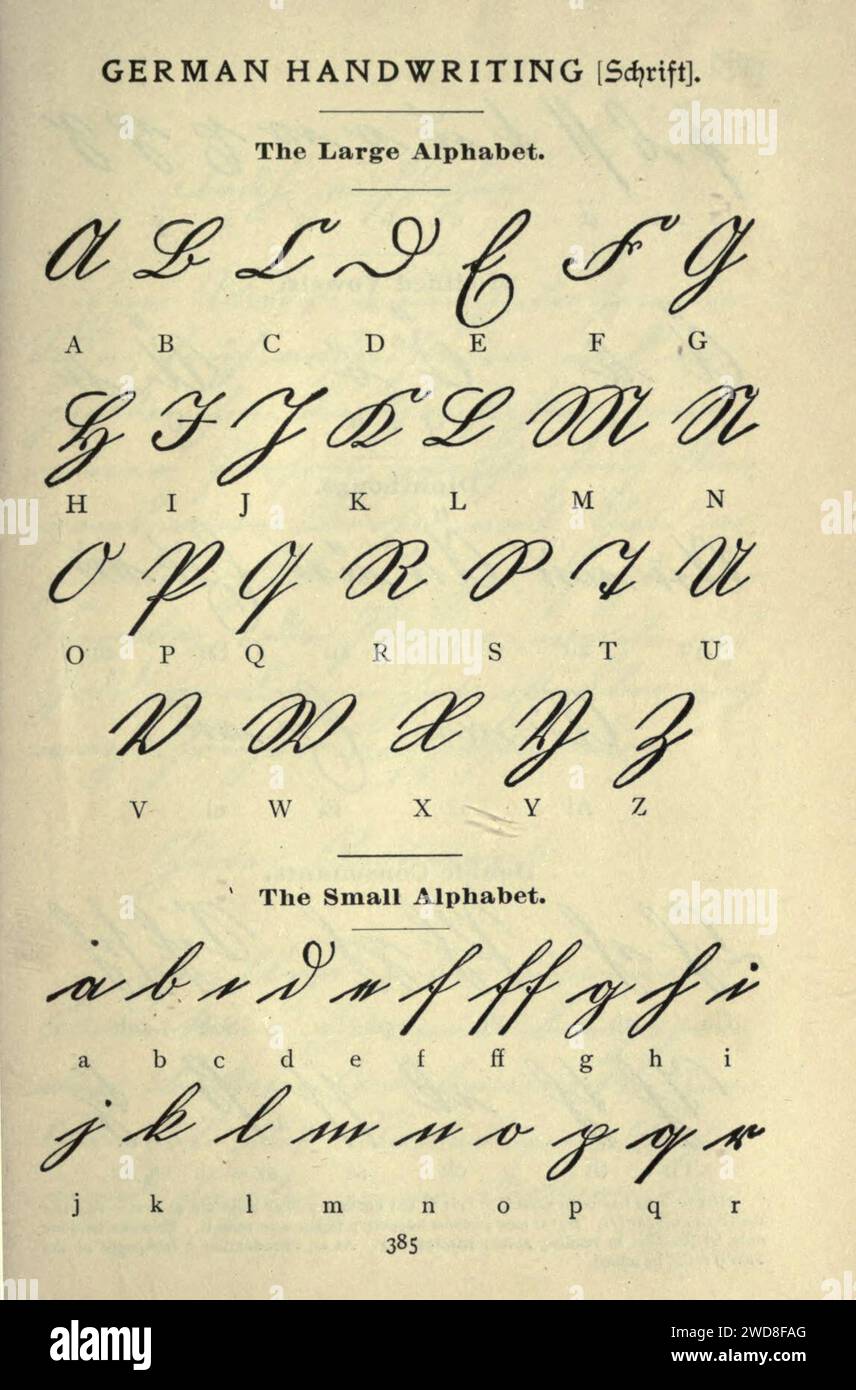 GERMAN HANDWRITING [Schrift].
The Large Alphabet.
A B C D E F G
A B C D E F G
H I J K L M N
H I J K L M N
O P Q R S T U
O P Q R S T U
V W X Y Z
V W X Y Z
The Small Alphabet.
a b c d e f ff g h i
a b c d e f ff g h i
j k l m n o p q r
j k l m n o p q r
385
alamy
Image ID: 2WD8FAG
www.alamy.com